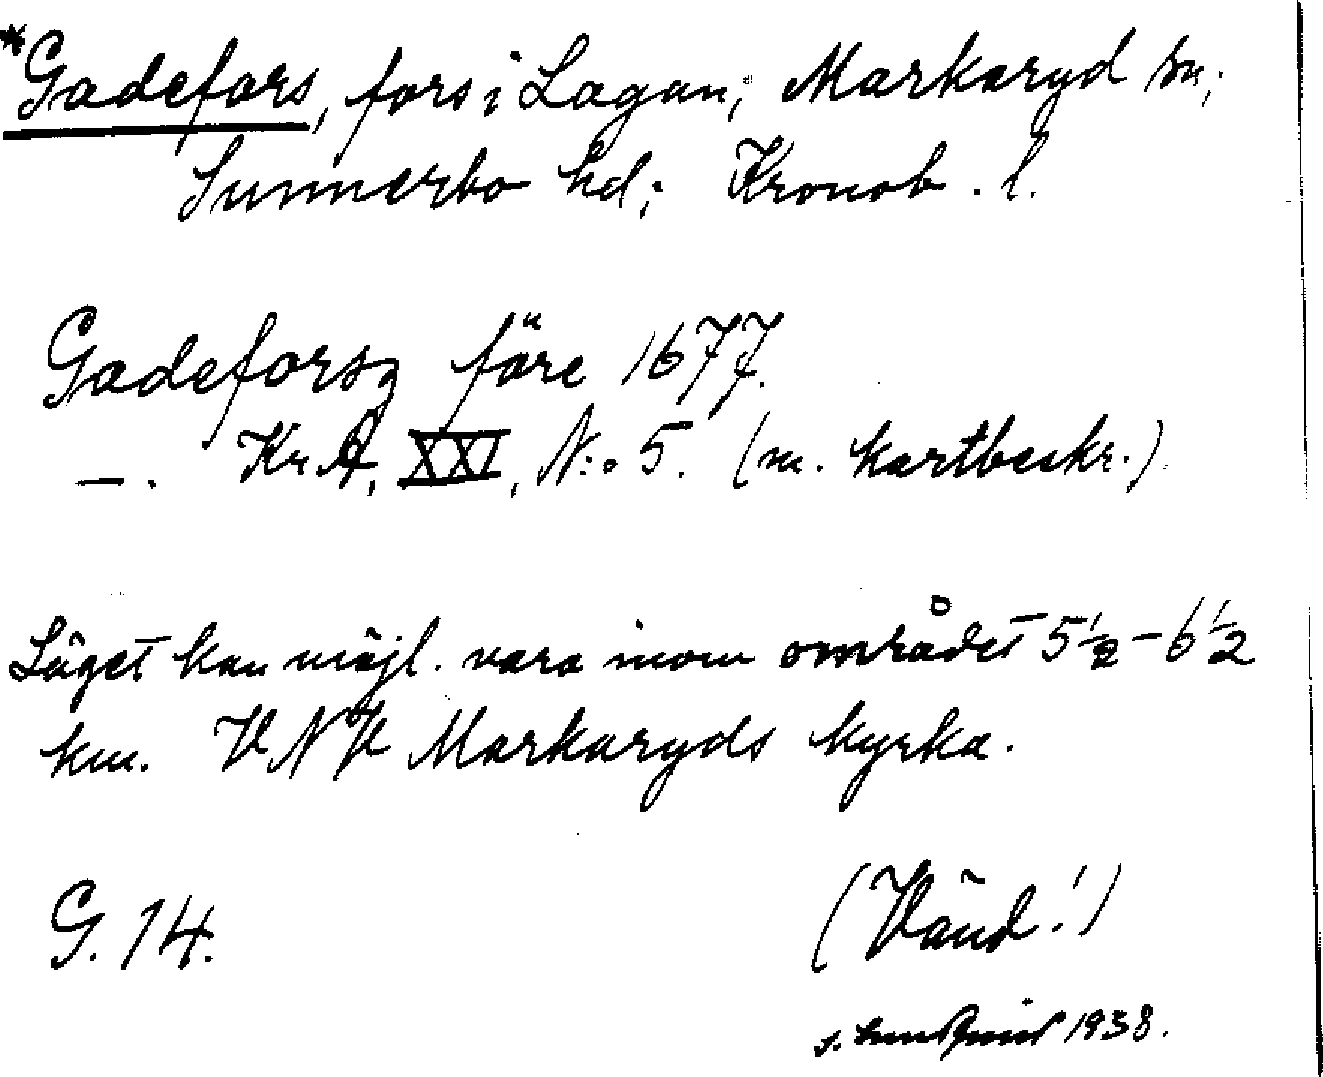 *Gadefors, fors i Lagan; Markaryd sn;
Sunnerbo hd; Kronob. l.
Gadeforsz före 1677.
—. Kr. A, XXI, N:o 5. (m. kartbeskr.)
Läget kan möjl. vara inom området 5 1/2 - 6 1/2
km. VNV Markaryds kyrka.
G. 14.
(Vänd!)
1938.